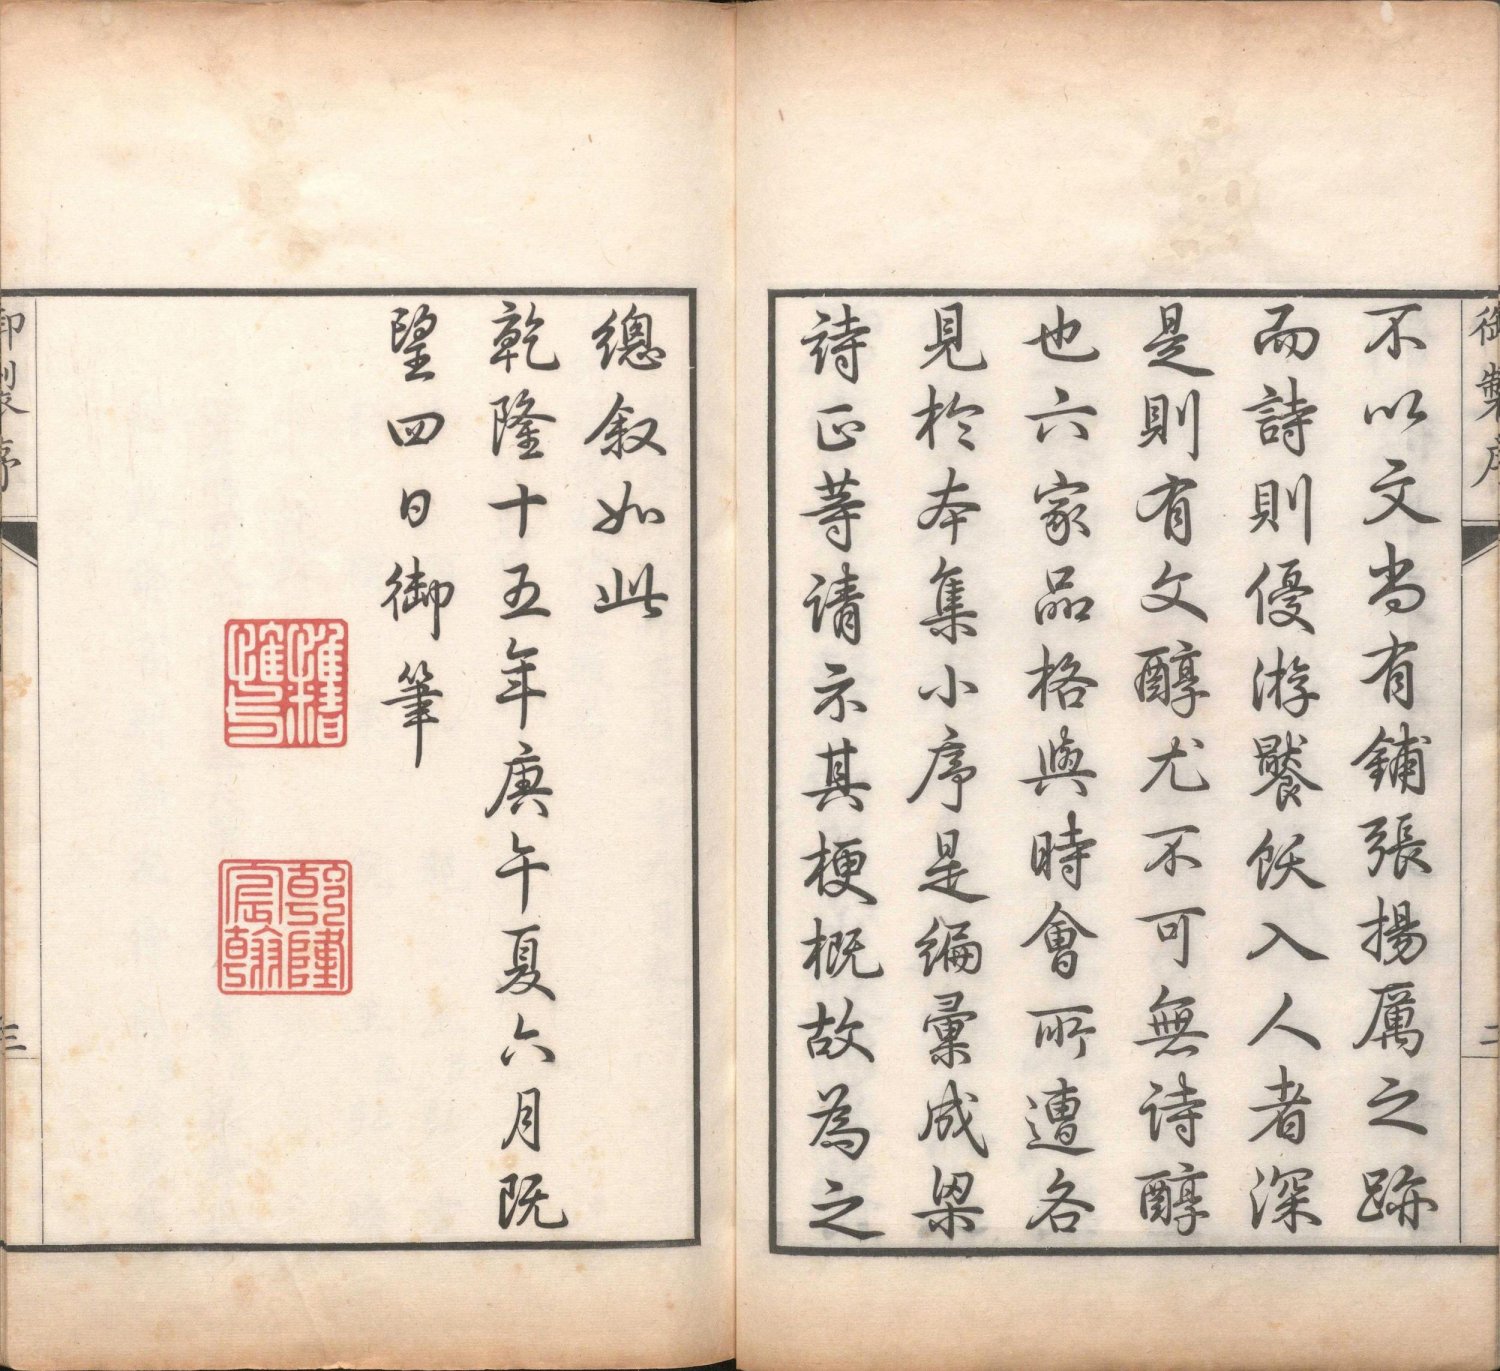 御製序
二
不以文尚有鋪張揚厲之跡
而詩則優游饜飫入人者深
是則有文醇尤不可無詩醇
也六家品格與時會所遭各
見於本集小序是編彙成梁
詩正等請示其梗概故為之
總叙如此
乾隆十五年庚午夏六月既
望四日御筆
惟精惟一
乾隆宸翰
御製序
三